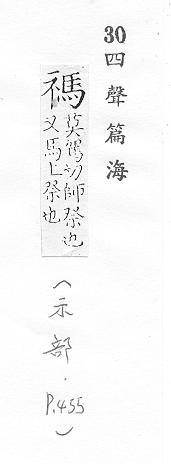 30四聲篇海
禡莫駕切師祭也
又馬上祭也
（示部．P.455）